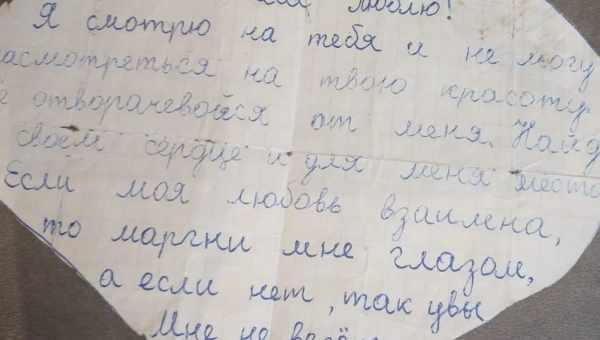 люблю!
Я смотрю на тебя и не могу
насмотреться на твою красоту.
отворачевойся от меня. Найд
своём сердце и для меня место
Если моя любовь взаимена,
то моргни мне глазом,
а если нет, так увы
Мне не